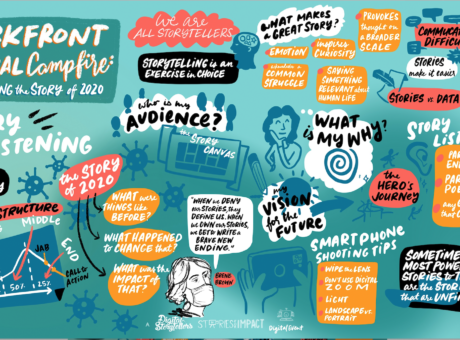 RKFRONT
AL Campfire:
ING the STORY of 2020
We are
ALL STORYTELLERS
STORYTELLING is an
EXERCISE in CHOICE
WHAT MAKES
a GREAT STORY?
EMOTION
inspires
CURIOSITY
PROVOKES
thought on
a BROADER
SCALE
COMMON
STRUGGLE
SAYING
SOMETHING
RELEVANT about
HUMAN LIFE
COMMUNICA
DIFFICU
STORIES
make it easier
STORIES vs DATA
RY
ISTENING
WHO is my
AUDIENCE?
the STORY
CANVAS
WHAT
is MY WHY?
STORY
LIS
the STORY
of 2020
STRUCTURE
MIDDLE
END
JAB
CALL to
ACTION
50%
25%
WHAT WERE
THINGS LIKE
BEFORE?
WHAT HAPPENED
to CHANGE that?
WHAT was the
IMPACT of
THAT?
"WHEN WE DENY
our STORIES, they
DEFINE US. WHEN
WE OWN our STORIES,
WE GET to WRITE a
BRAVE NEW
ENDING."
BRENE
BROWN
is my
VISION
for the
FUTURE
the
HERO'S
JOURNEY
PAR
EN
PAR
PO
any
that
SMART PHONE
SHOOTING TIPS
WIPE the LENS
DON'T USE DIGITAL
ZOOM
LIGHT
LANDSCAPE vs
PORTRAIT
SOMETIME
MOST POWER
STORIES to T
are the STOR
that are UNFIN
A
Digital
Storytellers
STORIES IMPACT
digital storytellers